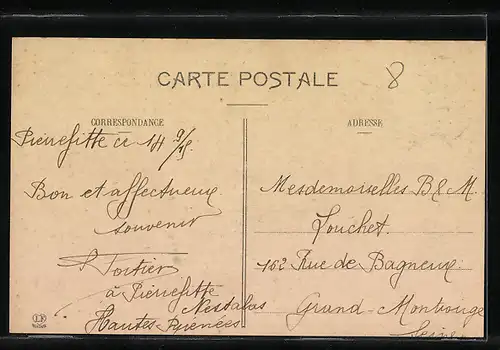 CARTE POSTALE
8
CORRESPONDANCE
Pierrefitte ce 14 9/15
Bon et affectueux
souvenir
Fortier
à Pierrefitte
Nestalas
Hautes Pyrenées
ADRESSE
Mesdemoiselles B & M.
Louchet.
162 Rue de Bagneux
Grand-Montrouge
Seine